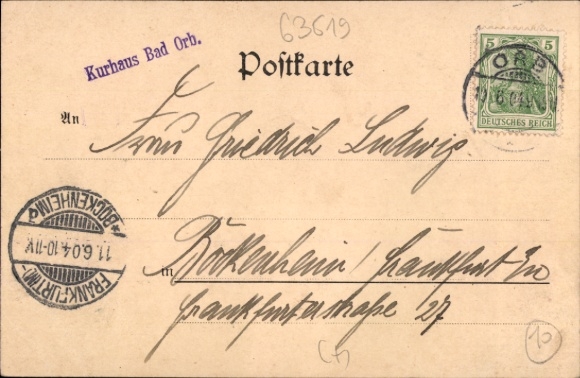 63619
Kurhaus Bad Orb.
Postkarte
5 5
ORB
6.04
DEUTSCHES REICH
An
Frau Friedrich Ludwig
*BOCKENHEIM*
11.6.04.10-11V.
FRANKFURT (MAIN)-
in Bockenheim / Frankfurt
Frankfurterstraße 27
10